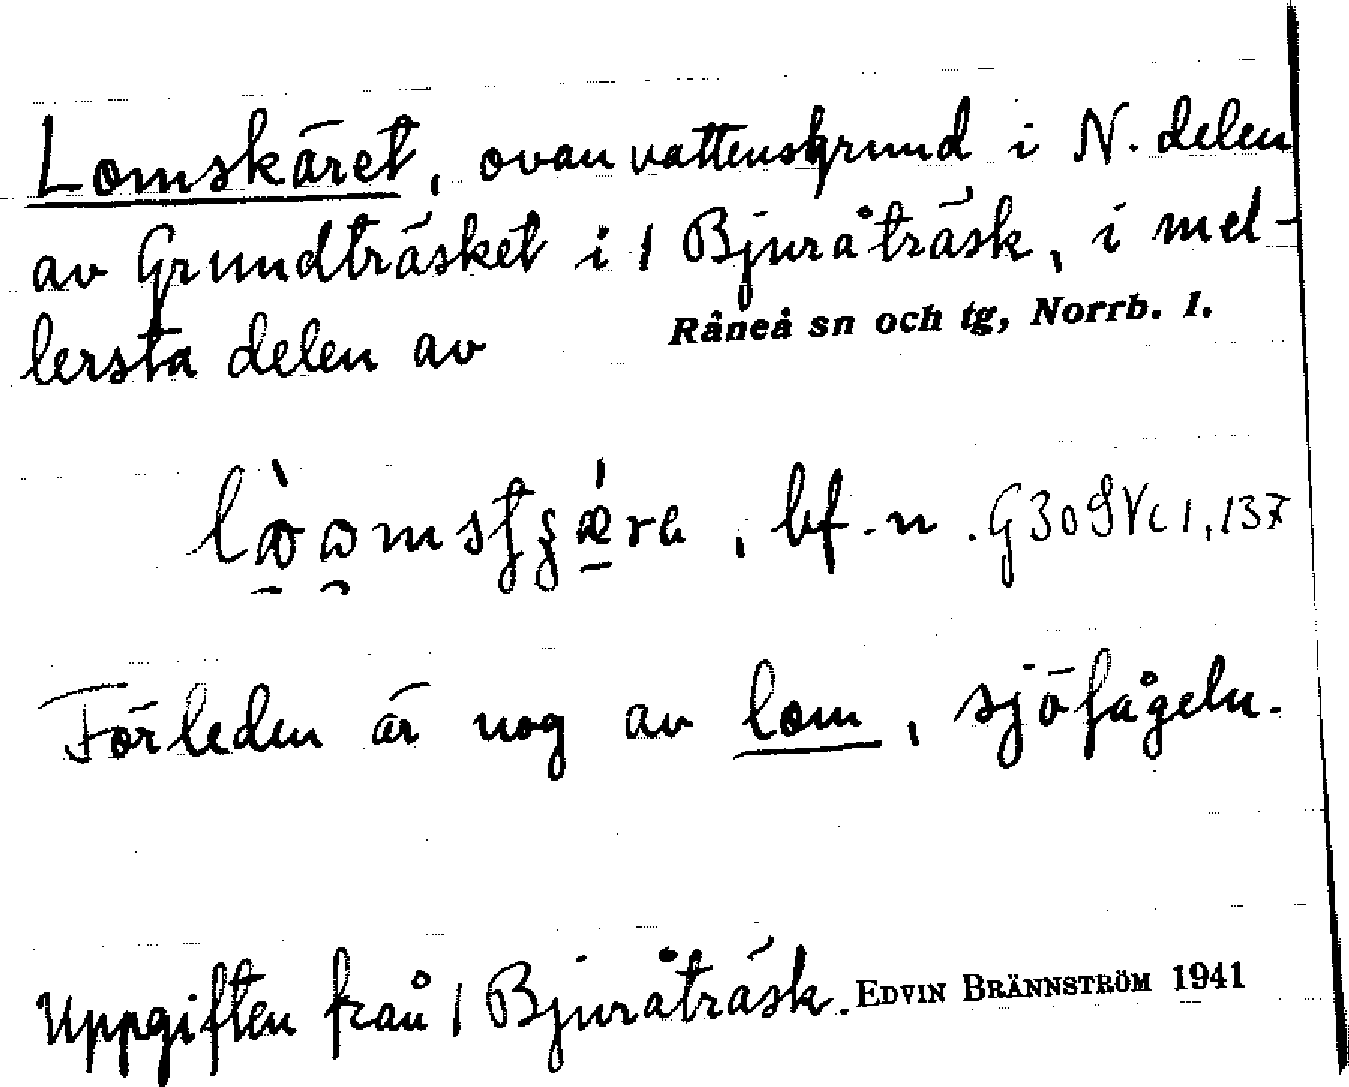 Lomskäret, ovanvattensgrund i N. delen
av Grundträsket i / Bjuråträsk, i mel-
lersta delen av Råneå sn och tg, Norrb. l.
, bf. n. G 30 S V c 1, 137
Förleden är nog av lom, sjöfågeln.
Uppgiften från / Bjuråträsk. EDVIN BRÄNNSTRÖM 1941